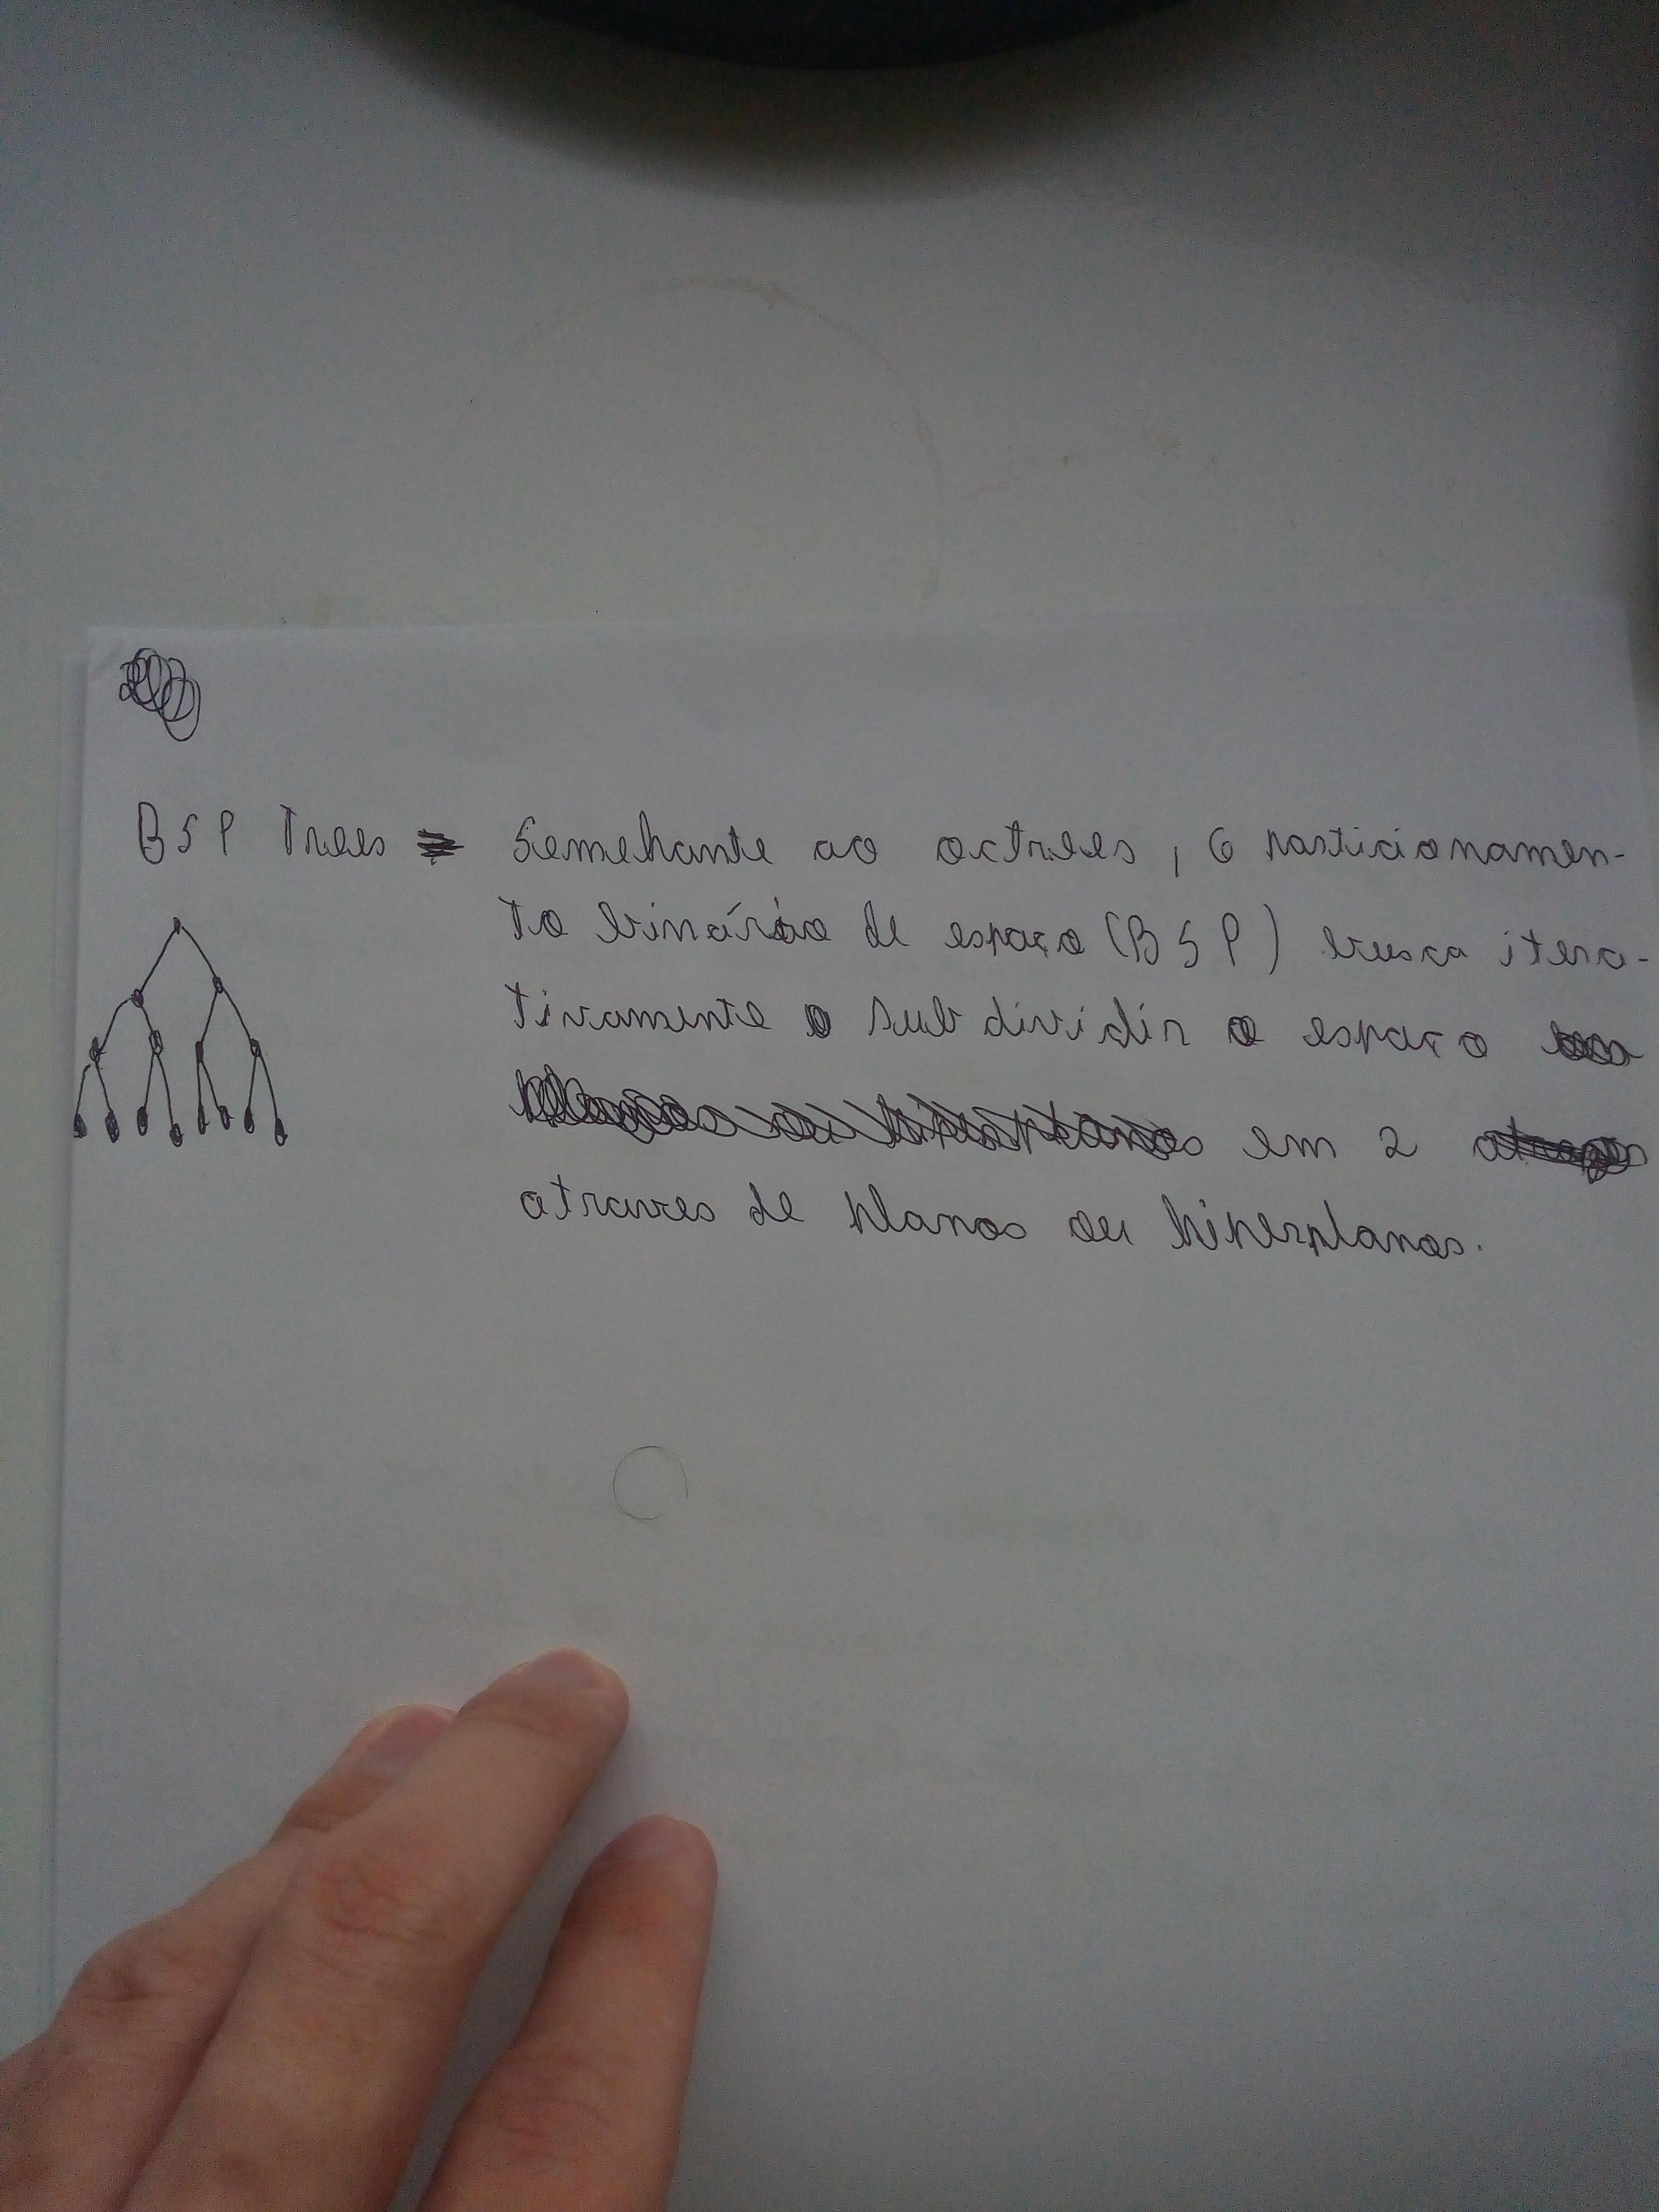 BSP Trees = Semehante ao octrees, o particionamen-
to binário de espaço (BSP) busca itera-
tivamente o subdividir o espaço
em 2
atraves de planos ou hiperplanos.